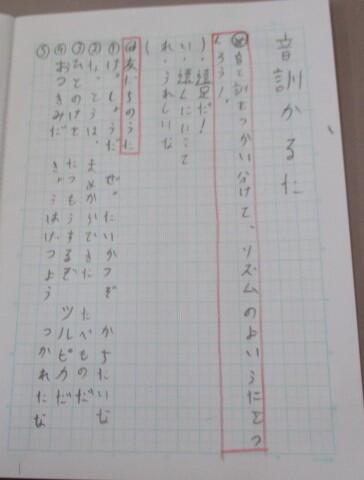 音訓かるた
め 音と訓をつかい分けて、リズムのよいうたをつ
くろう！
)・遠足だ！
い・遠くにいって
(れ・うれしいな
は 友だちのうた
① けっしょうだ ぜったいかつぞ かちたいな
② なっとうは、まめからできた たべものだ
③ ひとつのけを たいもうするぞ ツルピカだ
④ おつきみだ
⑤ きょうはけつよう つかれたな